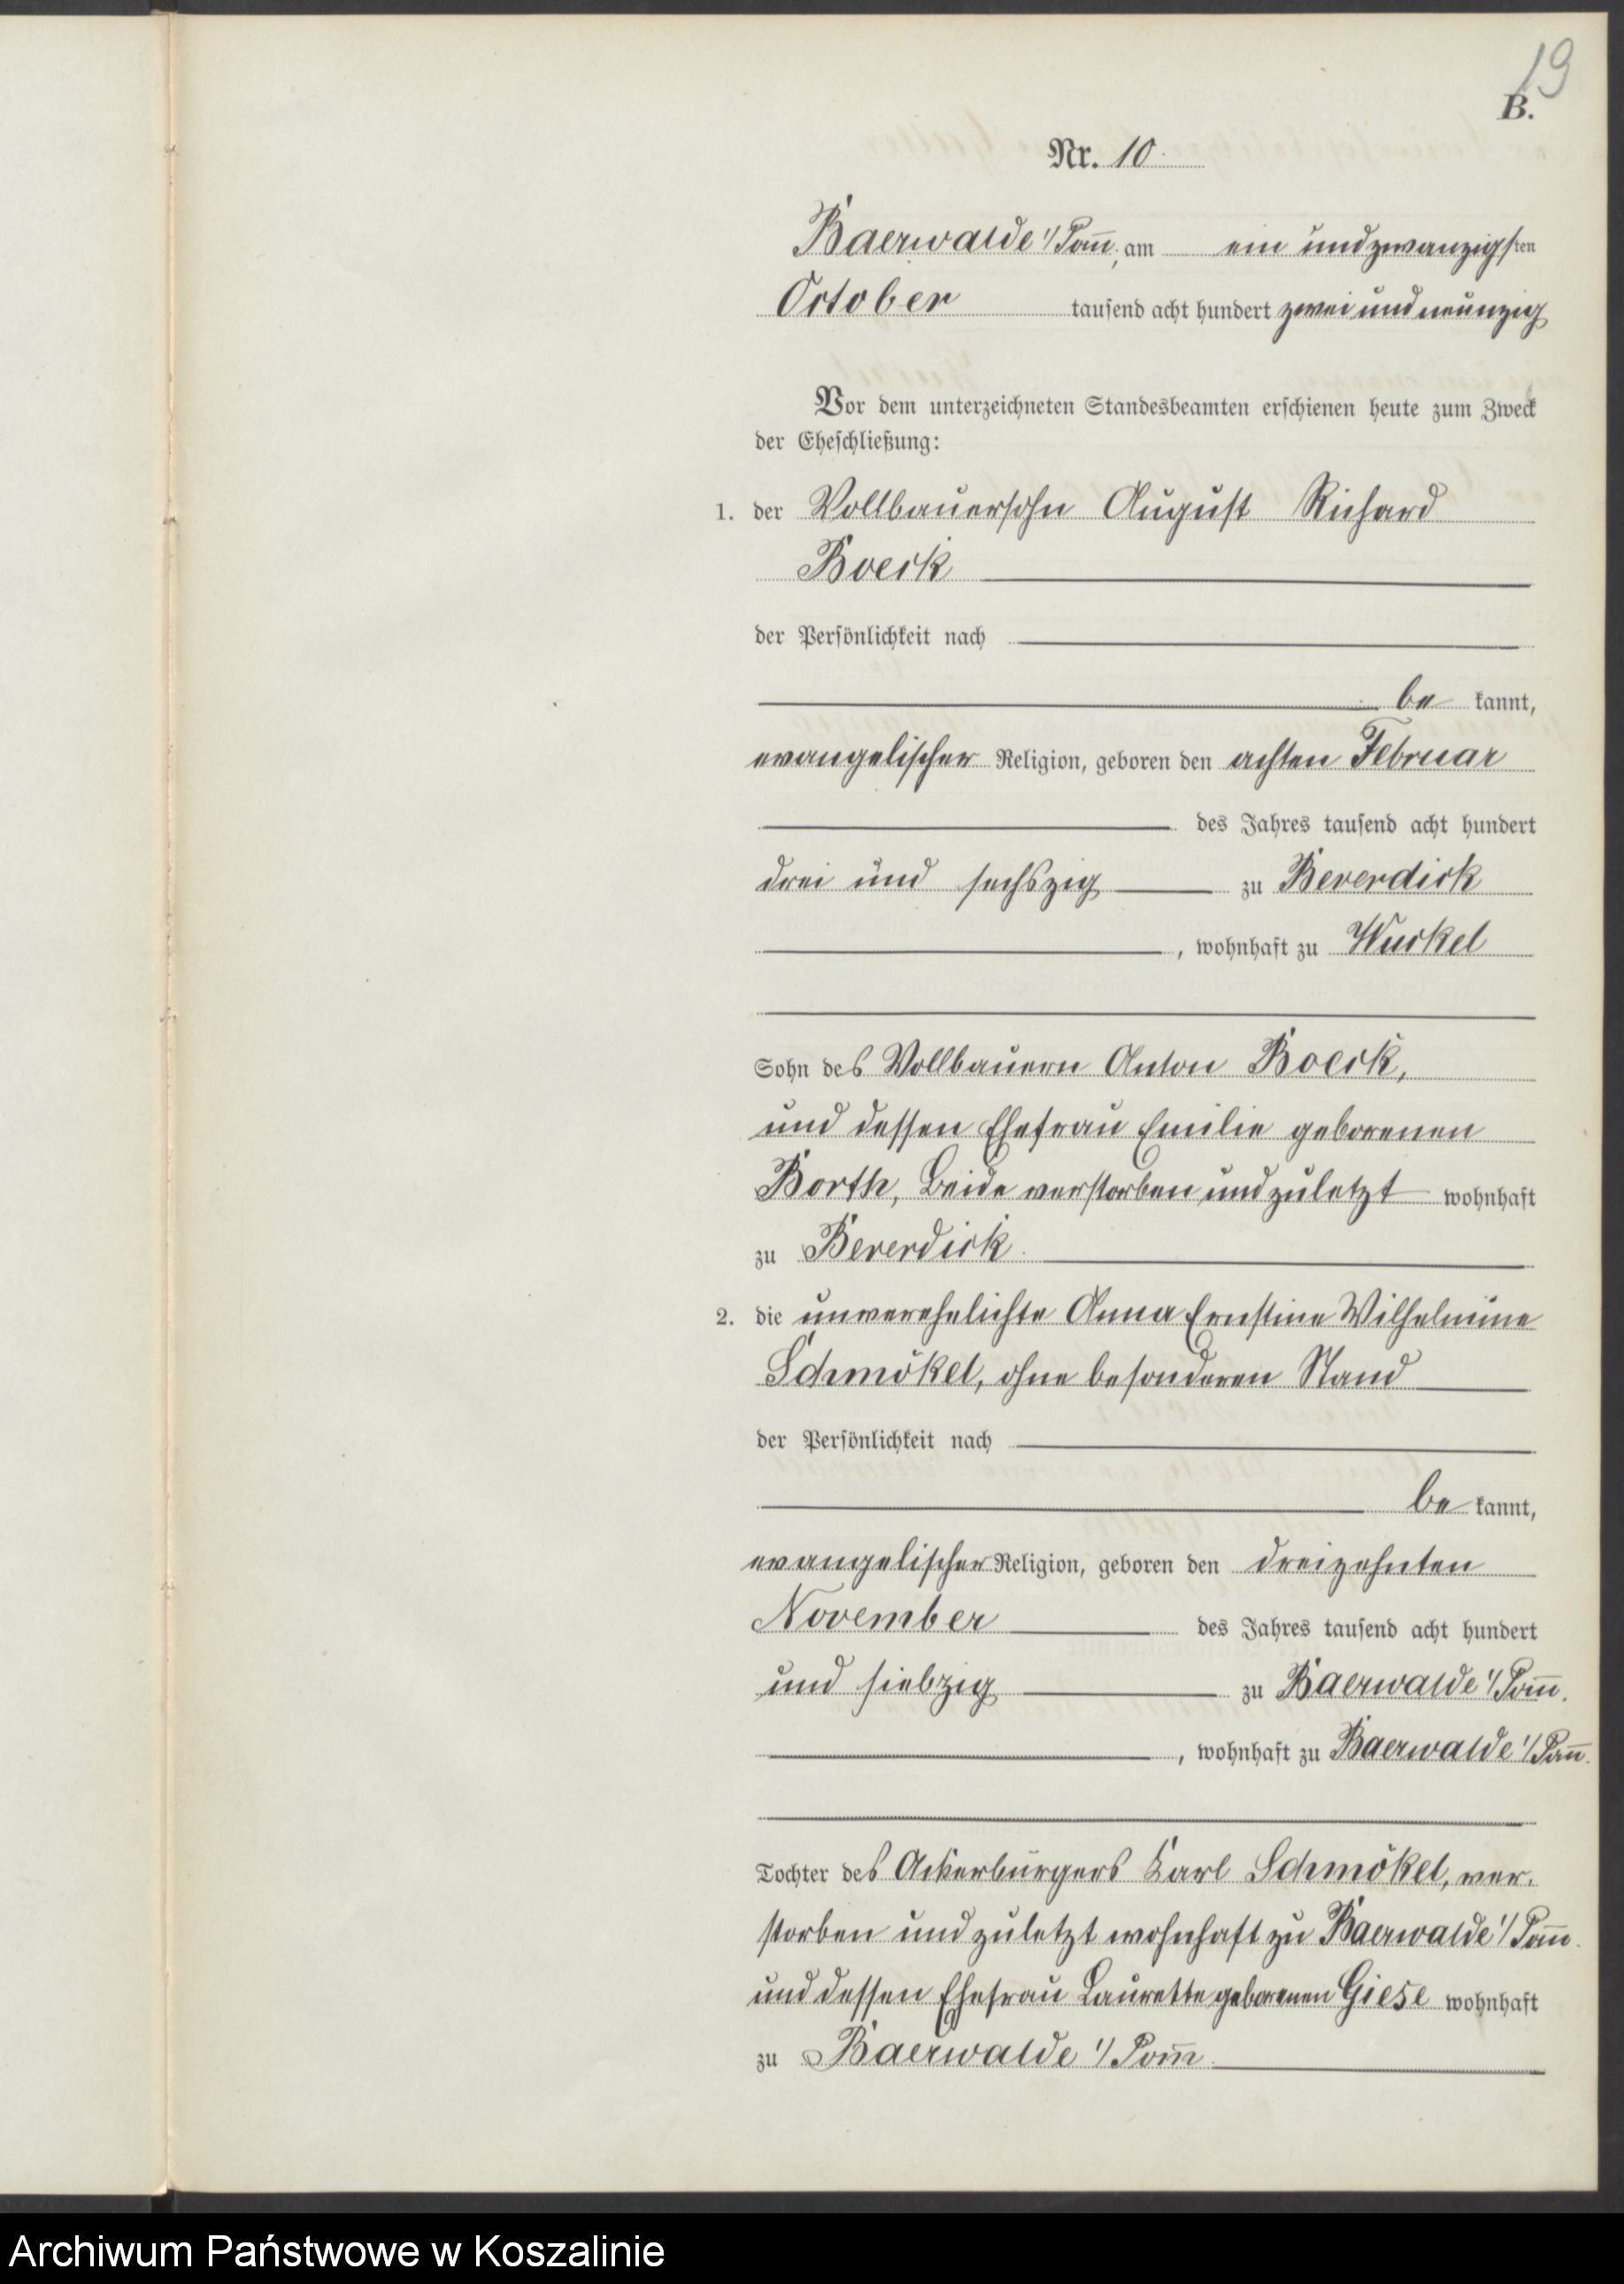 19
B.
Nr. 10
Baerwalde i/Pom̅. am ein und zwanzigsten
October tausend acht hundert zwei und neunzig
Vor dem unterzeichneten Standesbeamten erschienen heute zum Zweck
der Eheschließung:
1. der Vollbauersohn August Richard
Boeck
der Persönlichkeit nach
be kannt,
evangelischer Religion, geboren den achten Februar
des Jahres tausend acht hundert
drei und sechszig zu Beverdick
, wohnhaft zu Wuckel
Sohn des Vollbauern Anton Boeck,
und dessen Ehefrau Emilie geborenen
Borth, Beide verstorben und zuletzt wohnhaft
zu Beverdick.
2. die unverehelichte Anna Ernstine Wilhelmine
Schmökel, ohne besonderen Stand
der Persönlichkeit nach
be kannt,
evangelischer Religion, geboren den dreizehnten
November des Jahres tausend acht hundert
und siebzig zu Baerwalde i/Pom̅.
, wohnhaft zu Baerwalde i/Pom̅.
Tochter des Ackerbürgers Karl Schmökel, ver-
storben und zuletzt wohnhaft zu Baerwalde i/Pom̅.
und dessen Ehefrau Laurette geborenen Giese wohnhaft
zu Baerwalde i/Pom̅.
Archiwum Państwowe w Koszalinie